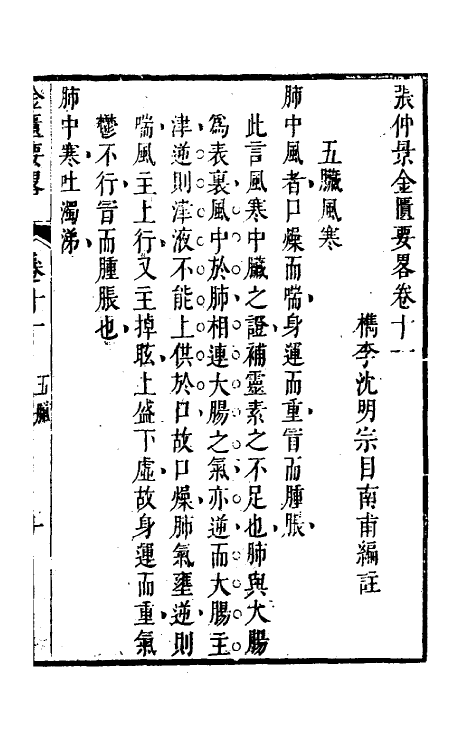 張仲景金匱要畧卷十一
檇李沈明宗目南甫編註
五臟風寒
肺中風者口燥而喘身運而重冒而腫脹
此言風寒中臟之證補靈素之不足也肺與大腸
爲表裏風中於肺相連大腸之氣亦逆而大腸主
津逆則津液不能上供於口故口燥肺氣壅逆則
喘風主上行又主掉眩上盛下虛故身運而重氣
鬱不行冒而腫脹也
肺中寒吐濁涕
金匱要畧 卷十一 五臟 一